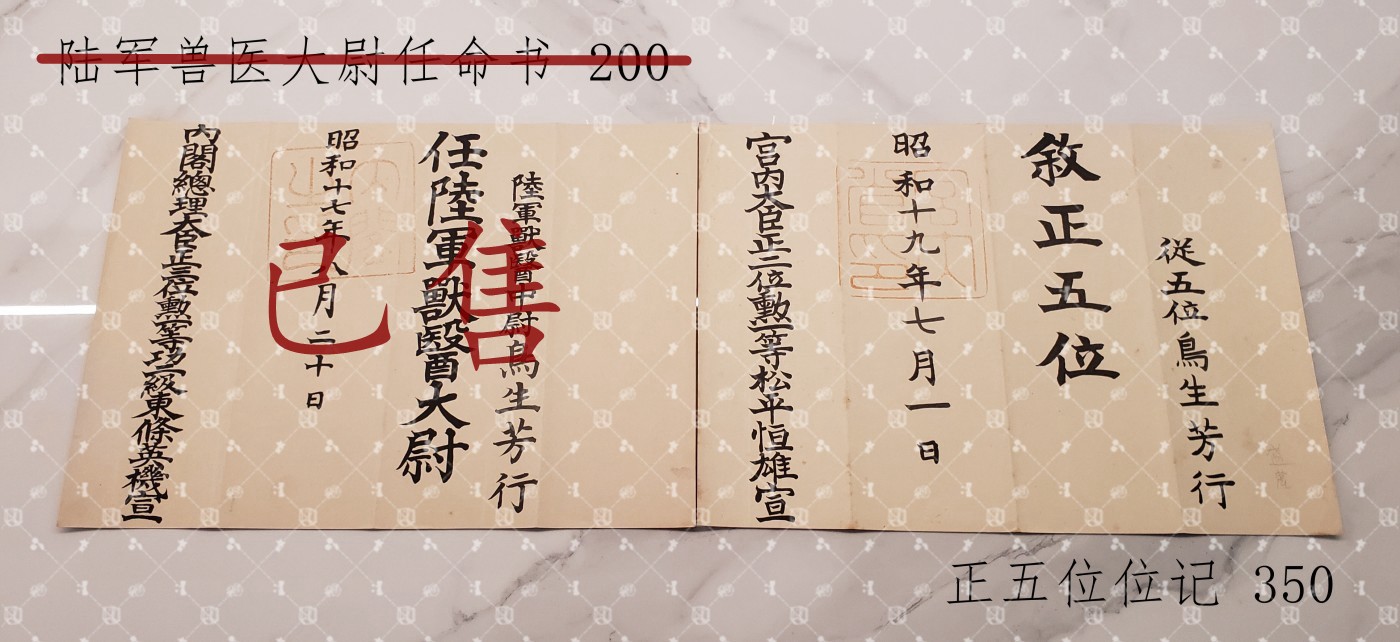 陆军兽医大尉任命书 200
從五位鳥生芳行
敘正五位
昭和十九年七月一日
宮内大臣正二位勲一等松平恒雄宣
陸軍獸醫中尉鳥生芳行
任陸軍獸醫大尉
昭和十七年八月二十日
内閣總理大臣正三位勲一等功二級東條英機宣
已售
正五位位记 350